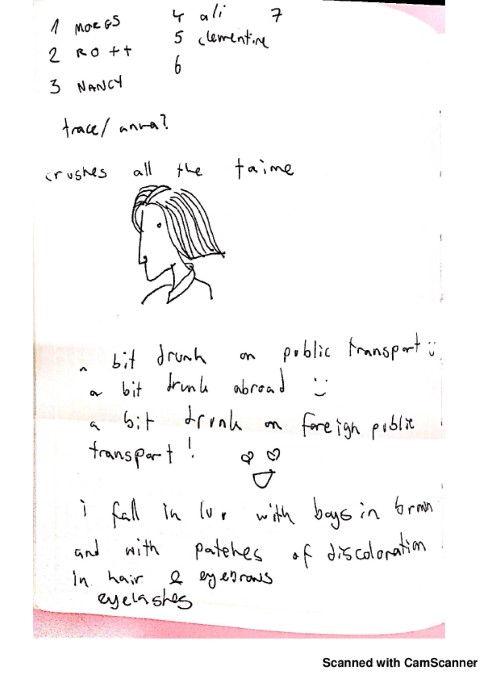 1 MORGS
2 RO++
3 NANCY
4 ali
5 clementine
6
7
trace/ anna?
crushes all the taime
a bit drunk on public transport
a bit drunk abroad
a bit drunk on foreign public
transport!
i fall in luv with boys in brown
and with patches of discoloration
In hair & eyebrows
eyelashes
Scanned with CamScanner